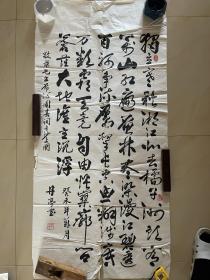 独立寒秋湘江北去橘子洲头看
萬山红遍层林尽染漫江碧透
百舸争流鹰击长空鱼翔浅底
万类霜天竞自由怅寥廓问
苍茫大地谁主沉浮
癸未年 月
毛主席 沁园春词